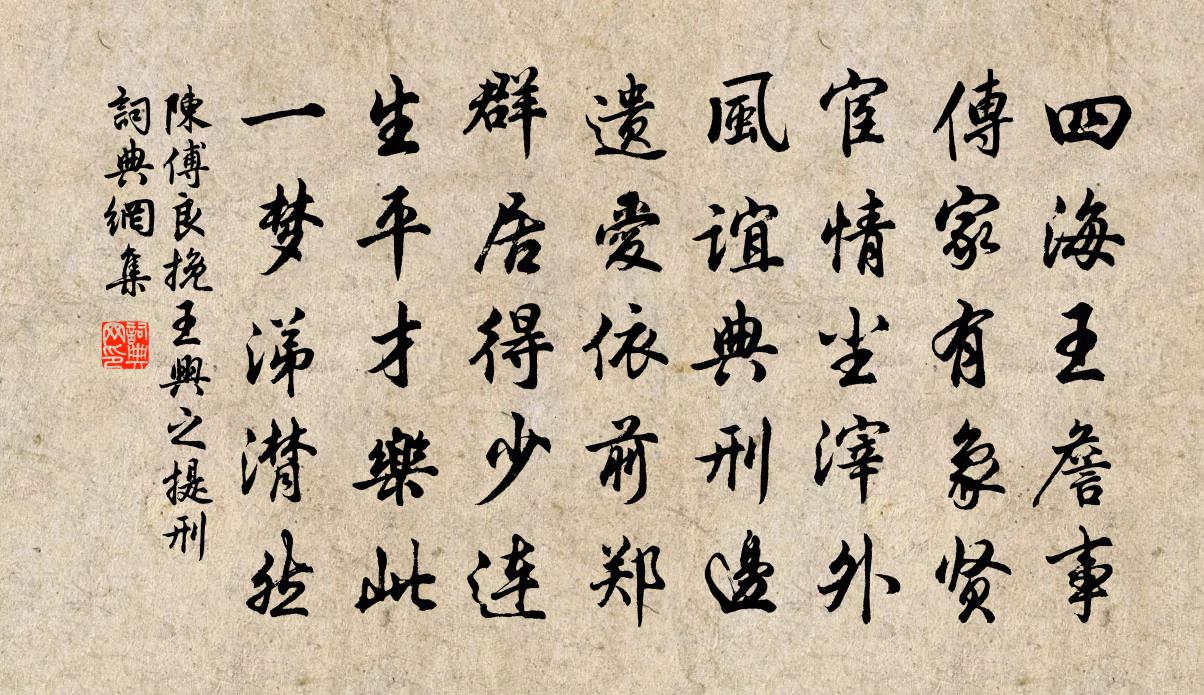 四海王詹事
傳家有象贤
宦情尘滓外
風誼典刑邊
遗愛依前郑
群居得少连
生平才樂此
一梦涕潸然
陳傅良挽王興之提刑
詞典網集
詞典网印